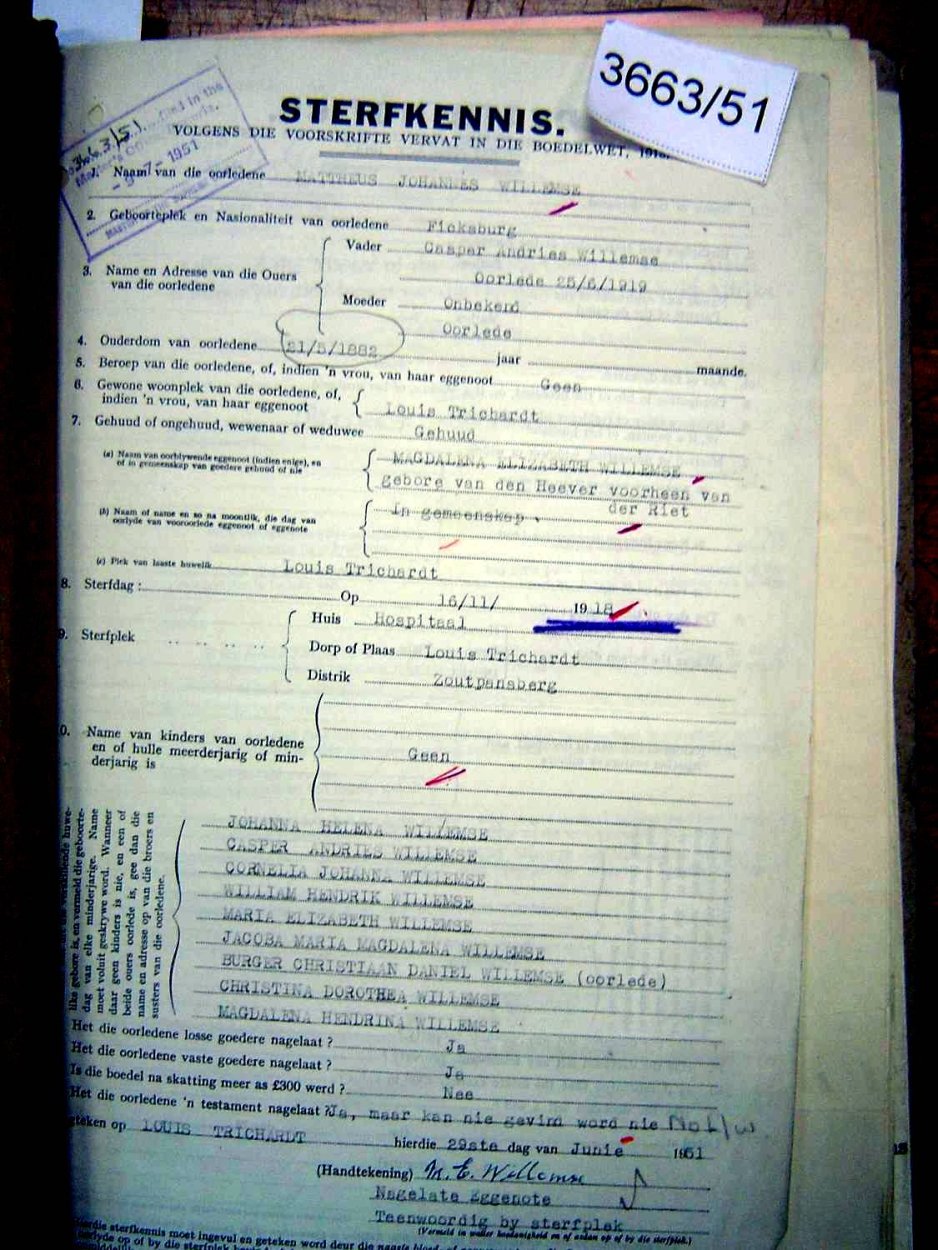 3663/51
3663/51 filed in the
Master's
- 9 -7- 1951
STERFKENNIS.
VOLGENS DIE VOORSKRIFTE VERVAT IN DIE BOEDELWET,
1. Naam van die oorledene MATTHEUS JOHANNES WILLEMSE
2. Geboorteplek en Nasionaliteit van oorledene Ficksburg
3. Name en Adresse van die Ouers van die oorledene
Vader Casper Andries Willemse
Oorlede 25/6/1919
Moeder Onbekend
Oorlede
4. Ouderdom van oorledene 21/5/1882 jaar maande.
5. Beroep van die oorledene, of, indien 'n vrou, van haar eggenoot Geen
6. Gewone woonplek van die oorledene, of,
indien 'n vrou, van haar eggenoot Louis Trichardt
7. Gehuud of ongehuud, wewenaar of weduwee Gehuud
(a) Naam van oorblywende eggenoot (indien enige), en
of in gemeenskap van goedere gehuud of nie
MAGDALENA ELIZABETH WILLEMSE
gebore van den Heever voorheen van
der Riet
(b) Naam of name en so na moontlik, die dag van
oorlyde van vooroorlede eggenoot of eggenote
In gemeenskap
(c) Plek van laaste huwelik Louis Trichardt
8. Sterfdag : Op 16/11/ 1918
9. Sterfplek
Huis Hospitaal
Dorp of Plaas Louis Trichardt
Distrik Zoutpansberg
0. Name van kinders van oorledene
en of hulle meerderjarig of min-
derjarig is
Geen
like gebore is, en vermeld die geboorte-
dag van elke minderjarige. Name
moet voluit geskrywe word. Wanneer
daar geen kinders is nie, en een of
beide ouers oorlede is, gee dan die
name en adresse op van die broers en
susters van die oorledene.
JOHANNA HELENA WILLEMSE
CASPER ANDRIES WILLEMSE
CORNELIA JOHANNA WILLEMSE
WILLIAM HENDRIK WILLEMSE
MARIA ELIZABETH WILLEMSE
JACOBA MARIA MAGDALENA WILLEMSE
BURGER CHRISTIAAN DANIEL WILLEMSE (oorlede)
CHRISTINA DOROTHEA WILLEMSE
MAGDALENA HENDRINA WILLEMSE
Het die oorledene losse goedere nagelaat ? Ja
Het die oorledene vaste goedere nagelaat ? Ja
Is die boedel na skatting meer as £300 werd ? Nee
Het die oorledene 'n testament nagelaat ? Ja, maar kan nie gevird word nie
geteken op LOUIS TRICHARDT hierdie 29ste dag van Junie 1951
(Handtekening) M. E. Willemse
Nagelate eggenote
Teenwoordig by sterfplek
(Vermeld in watter hoedanigheid en of aldan op of by die sterfplek.)
Hierdie sterfkennis moet ingevul en geteken word deur die naaste bloed-